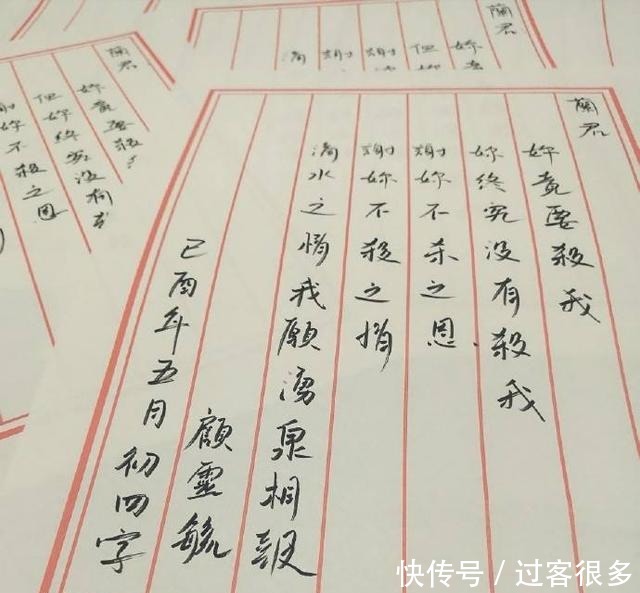 蘭君
妳竟要殺我
妳终究没有殺我
謝妳不杀之恩
謝妳不殺之情
滴水之情我願湧泉相報
顧靈毓
己酉年五月初四字
蘭君
妳竟要殺
但妳终究没有
謝妳不殺之恩
蘭君
妳竟
但妳
謝妳
謝
滴
快传号 / 过客很多